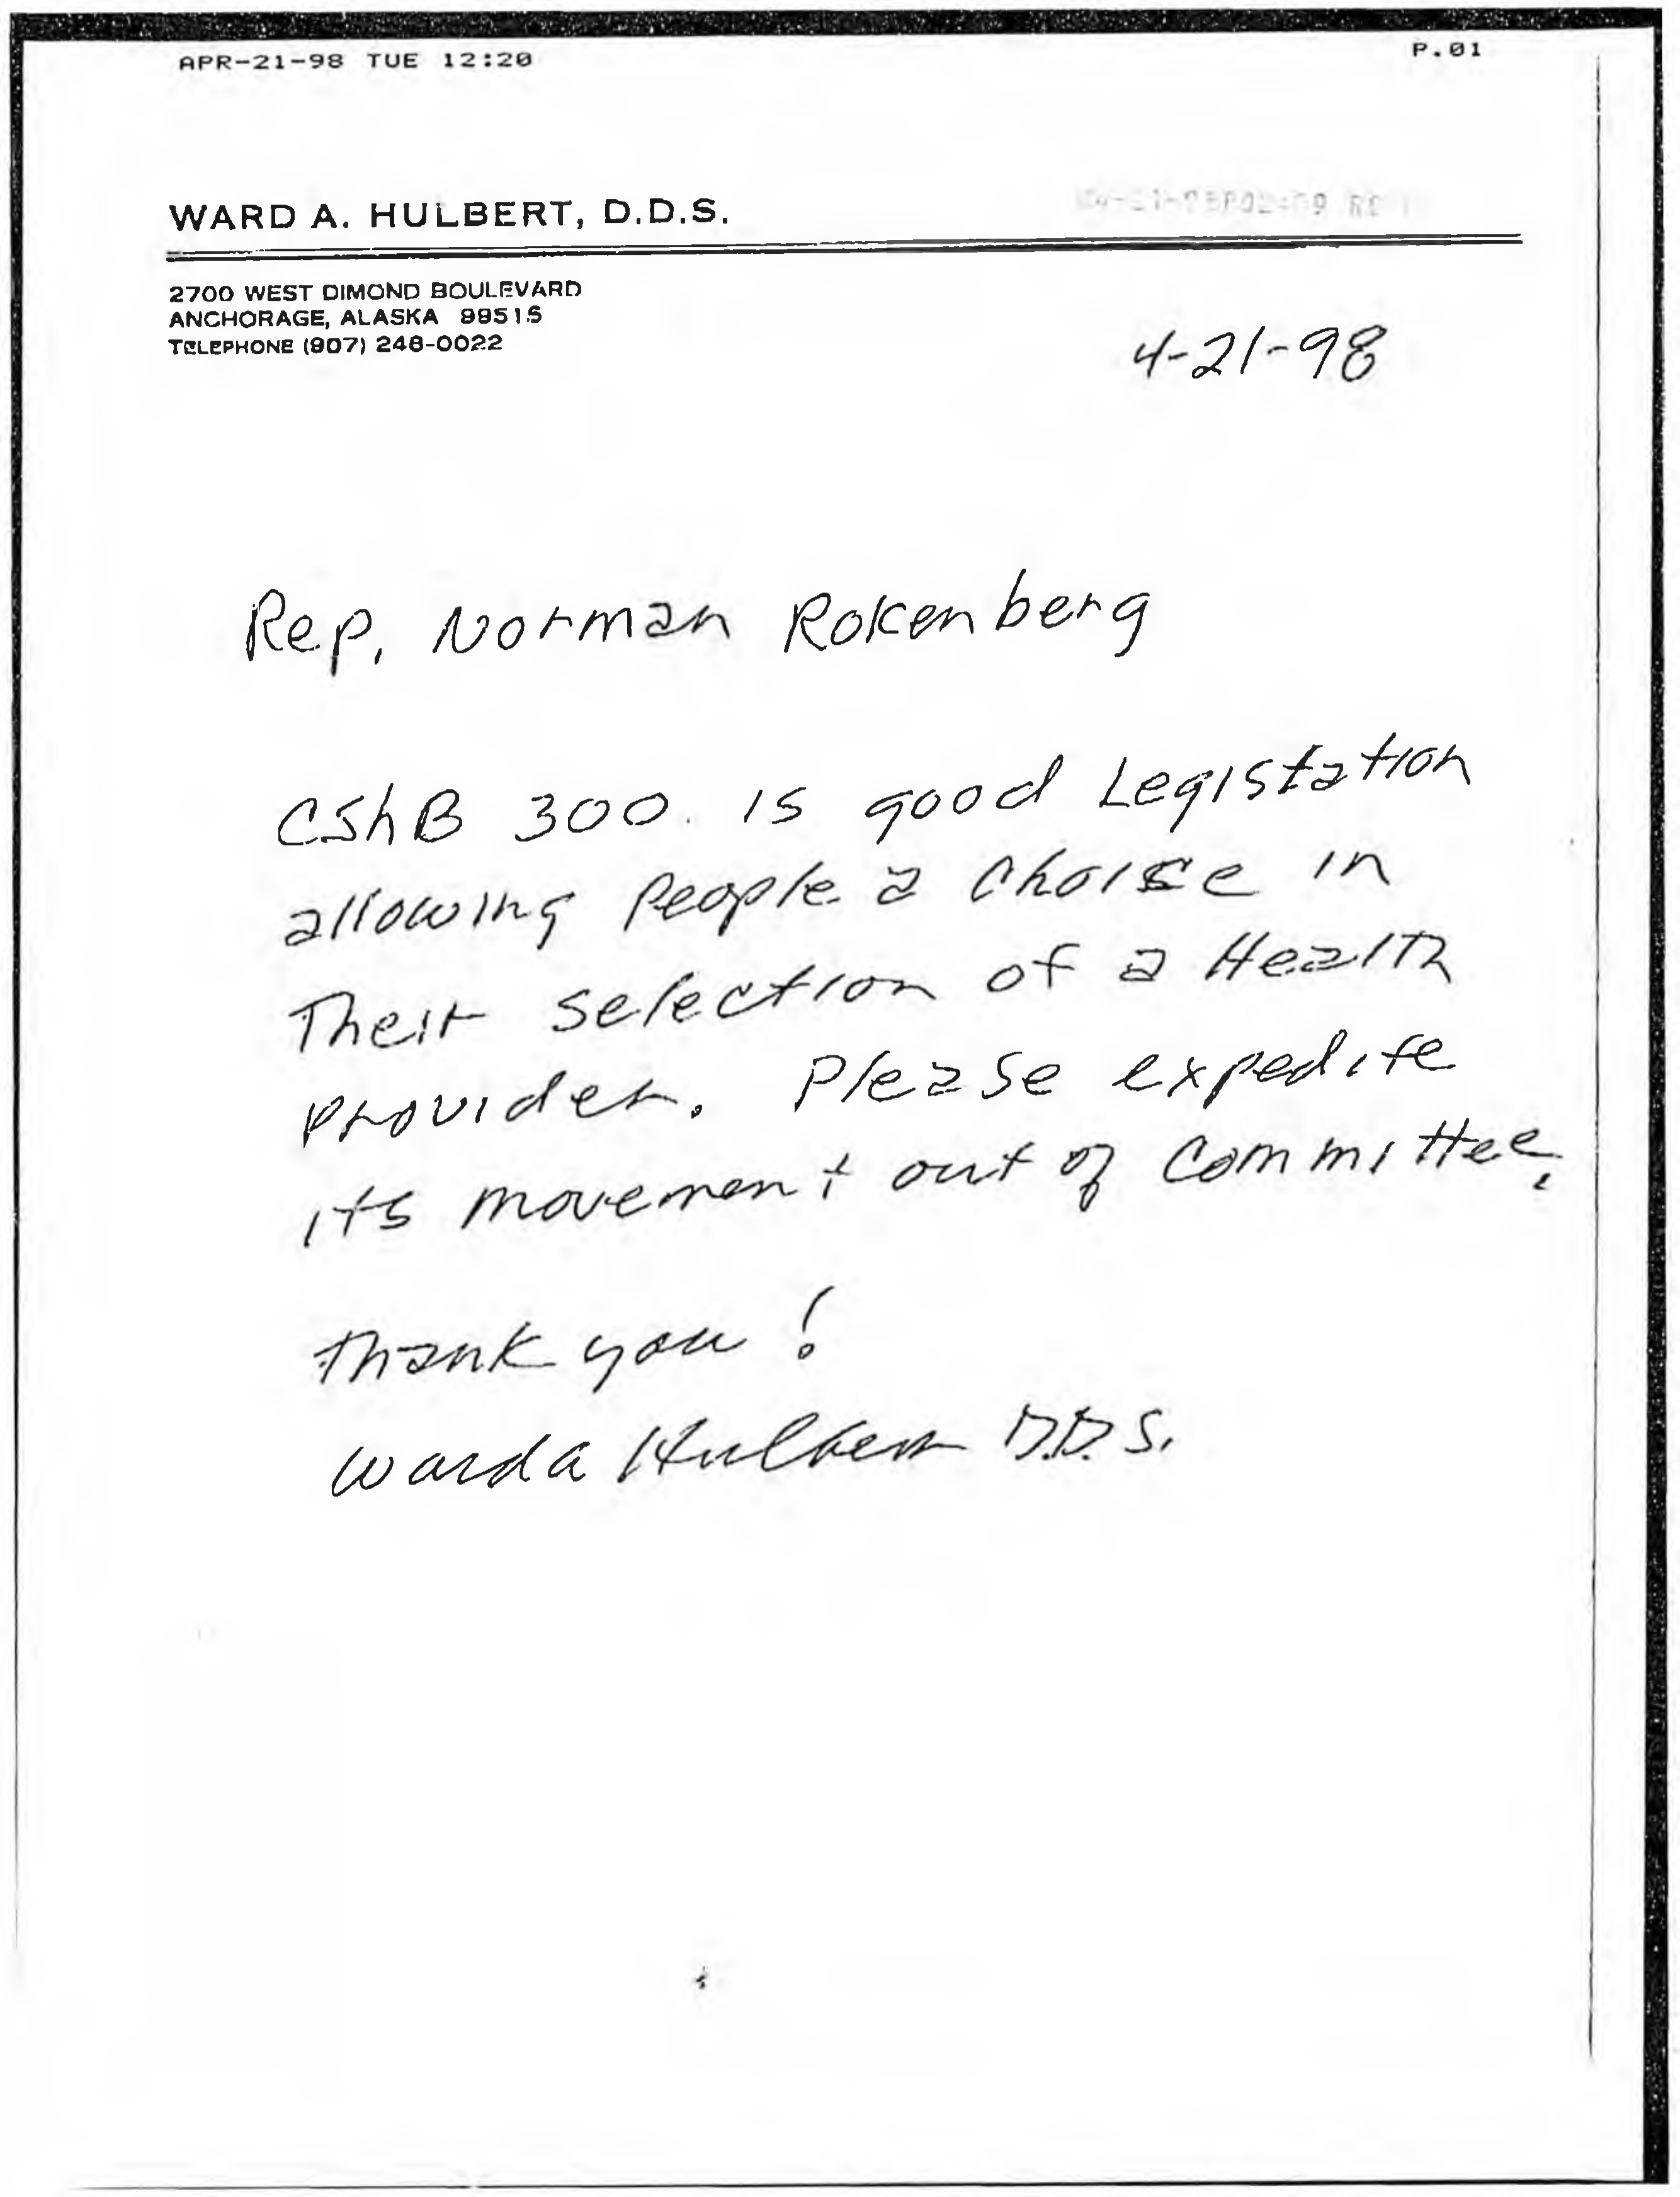 APR-21-98 TUE 12:20 P.01
WARD A. HULBERT, D.D.S.
2700 WEST DIMOND BOULEVARD
ANCHORAGE, ALASKA 99515
TELEPHONE (907) 248-0022
4-21-98
Rep. Norman Rokenberg
CShB 300. is good Legistation
allowing People a Choice in
Their selection of a Health
Provider. Please expedite
its movement out of Committee.
Thank you!
Ward A Hulbert D.D.S.